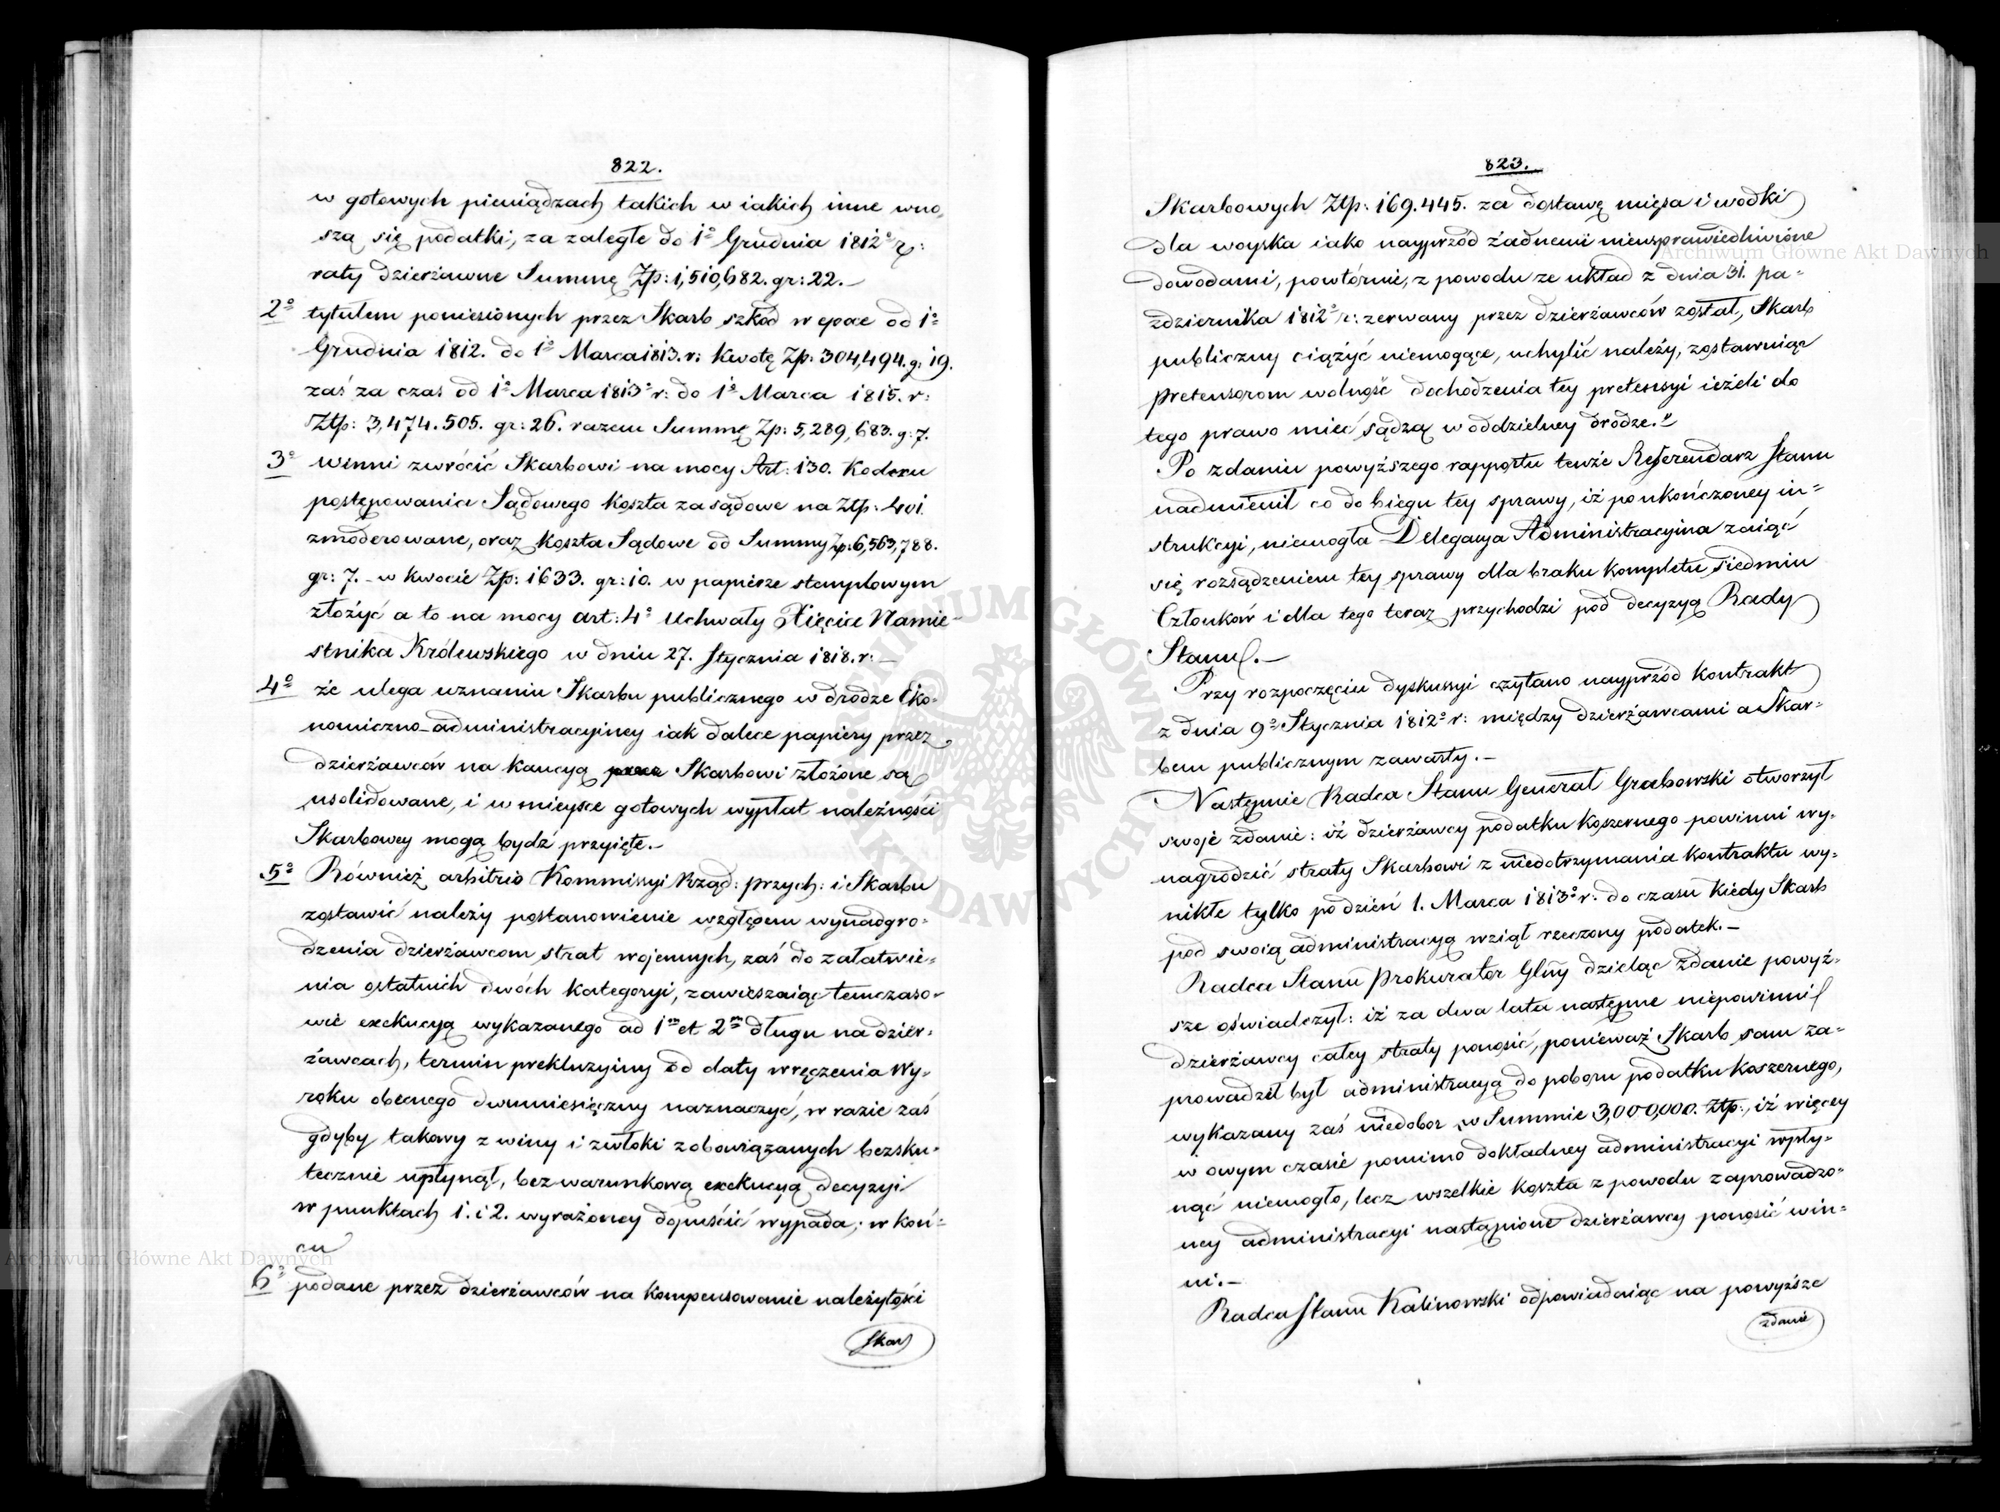 822.
w gotowych pieniądzach takich w iakich inne wno,
szą się podatki, za zaległe do 1º Grudnia 1812º r:
raty dzierżawne Summę Zp: 1,510,682. gr: 22.—
2º tytułem poniesionych przez Skarb szkód w epoce od 1º
Grudnia 1812. do 1º Marca 1813. r: kwotę Zp: 304,494. g: 19.
zaś za czas od 1º Marca 1813º r: do 1º Marca 1815. r:
Ztp: 3,474.505. gr: 26. razem Summę Zp: 5,289,683. g: 7.
3º winni zwrócić Skarbowi na mocy Art: 130. Kodexu
postępowania Sądowego koszta zasądowe na Ztp: 401.
zmoderowane, oraz koszta Sądowe od Summy Zp: 6,563,788.
gr: 7. – w kwocie Zp: 1633. gr: 10. w papierze stemplowym
złożyć a to na mocy art: 4º Uchwały Xięcia Namie-
stnika Królewskiego w dniu 27. Stycznia 1818. r: —
4º że ulega uznaniu Skarbu publicznego w drodze Eko-
nomiczno-administracyiney iak dalece papiery przez
dzierżawców na kaucyą Skarbowi złożone są
usolidowane, i w mieysce gotowych wypłat należności
Skarbowey mogą bydź przyięte.—
5º Również arbitrio Kommissyi Rząd: przych: i Skarbu
zostawić należy postanowienie względem wynadgro-
dzenia dzierżawcom strat wojennych, zaś do załatwie-
nia ostatnich dwóch kategoryi, zawieszaiąc temczaso-
wie exekucyą wykazanego ad 1m et 2m długu na dzier-
żawcach, termin prekluzyiny od daty wręczenia Wy-
roku obecnego dwumiesięczny naznaczyć, w razie zaś
gdyby takowy z winy i zwłoki zobowiązanych bezsku-
tecznie upłynął, bezwarunkową exekucyą decyzyi
w punktach 1. i 2. wyrażoney dopuścić wypada; w koń-
cu
6º podane przez dzierżawców na kompensowanie należytości
Skar
823.
Skarbowych Ztp: 169.445. za dostawę mięsa i wódki
dla woyska iako nayprzód żadnemi nieusprawiedliwione
dowodami, powtórnie, z powodu ze układ z dnia 31. pa-
ździernika 1812º r: zerwany przez dzierżawców został, Skarb
publiczny ciążyć niemogące, uchylić należy, zostawuiąc
pretensorom wolność dochodzenia tey pretensyi ieżeli do
tego prawo mieć sądzą w oddzielney drodze."
Po zdaniu powyższego rapportu tenże Referendarz Stanu
nadmienił co do biegu tey sprawy, iż po ukończoney in-
strukcyi, niemogła Delegacya Administracyina zaiąć
się rozsądzeniem tey sprawy dla braku kompletu siedmiu
Członków i dla tego teraz przychodzi pod decyzyą Rady
Stanu.—
Przy rozpoczęciu dyskussyi czytano nayprzód kontrakt
z dnia 9º Stycznia 1812º r: między dzierżawcami a Skar-
bem publicznym zawarty.—
Następnie Radca Stanu Generał Grabowski otworzył
swoje zdanie: iż dzierżawcy podatku koszernego powinni wy-
nagrodzić straty Skarbowi z niedotrzymania kontraktu wy-
nikłe tylko po dzień 1. Marca 1813º r: do czasu kiedy Skarb
pod swoią administracyą wziął rzeczony podatek.—
Radca Stanu Prokurator Glny dzieląc zdanie powyż-
sze oświadczył: iż za dwa lata następne niepowinni
dzierżawcy całey straty ponosić, ponieważ Skarb sam za-
prowadził był administracyą do poboru podatku koszernego,
wykazany zaś niedobor w Summie 3,000,000. Ztp:, iż więcey
w owym czasie pomimo dokładney administracyi wpły-
nąć niemogło, lecz wszelkie koszta z powodu zaprowadzo-
ney administracyi nastąpione dzierżawcy ponosić win-
ni.—
Radca Stanu Kalinowski odpowiadaiąc na powyższe
zdanie
Archiwum Główne Akt Dawnych
Archiwum Główne Akt Dawnych
ARCHIWUM GŁÓWNE AKT DAWNYCH